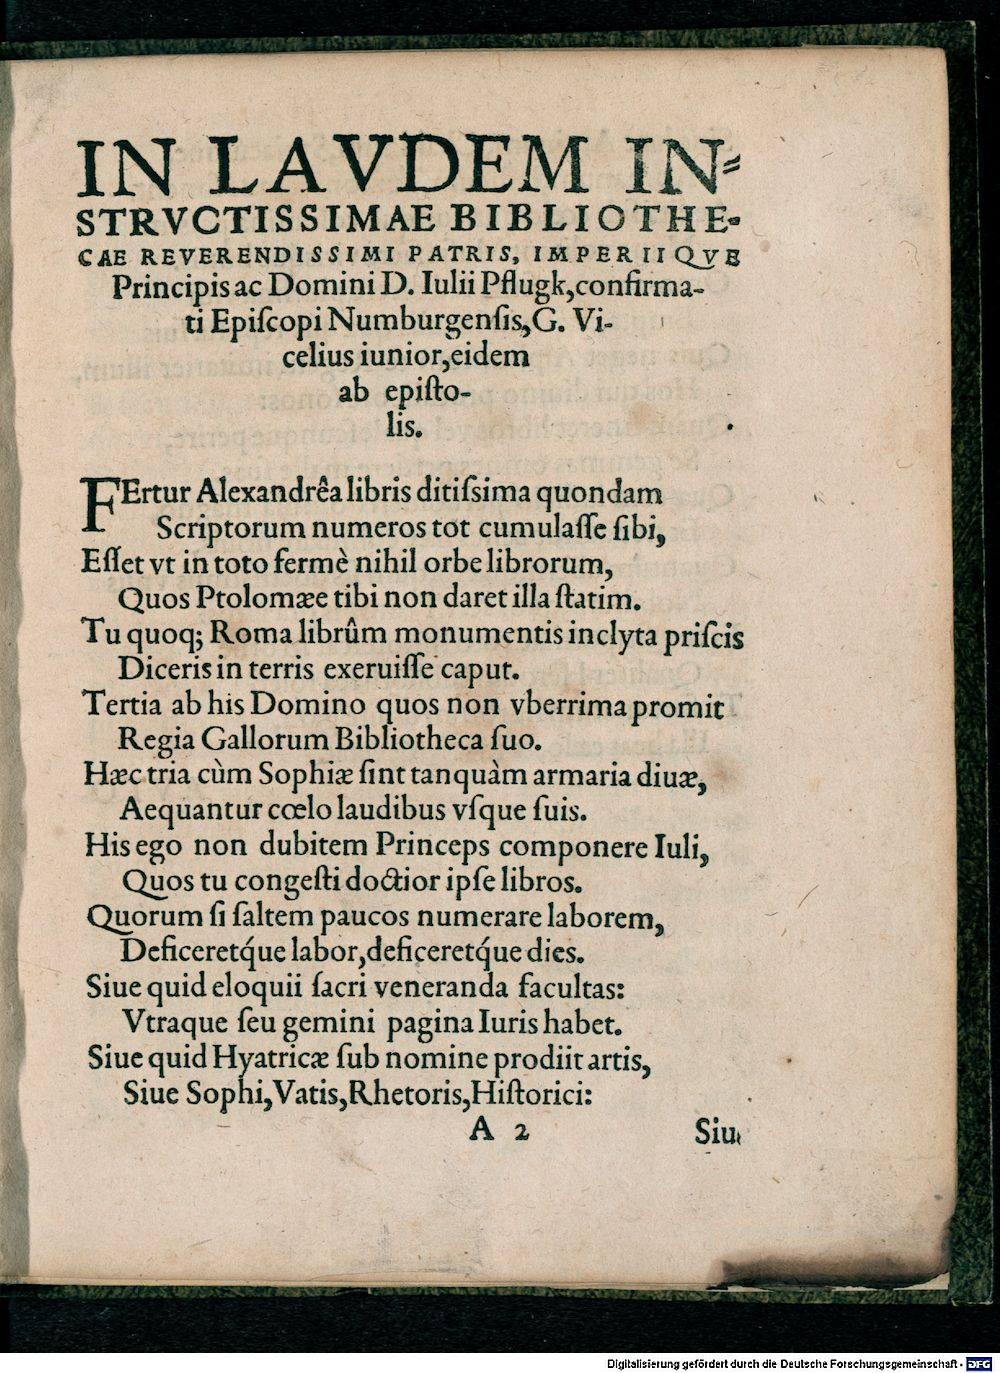 IN LAVDEM IN⸗
STRVCTISSIMAE BIBLIOTHE-
CAE REVERENDISSIMI PATRIS, IMPERIIQVE
Principis ac Domini D. Iulii Pflugk, confirma-
ti Epiſcopi Numburgenſis, G. Vi-
celius iunior, eidem
ab epiſto-
lis.
FErtur Alexandrêa libris ditiſsima quondam
Scriptorum numeros tot cumulaſſe ſibi,
Eſſet vt in toto fermè nihil orbe librorum,
Quos Ptolomæe tibi non daret illa ſtatim.
Tu quoq; Roma librûm monumentis inclyta priſcis
Diceris in terris exeruiſſe caput.
Tertia ab his Domino quos non vberrima promit
Regia Gallorum Bibliotheca ſuo.
Hæc tria cùm Sophiæ ſint tanquàm armaria diuæ,
Aequantur cœlo laudibus vſque ſuis.
His ego non dubitem Princeps componere Iuli,
Quos tu congeſti doctior ipſe libros.
Quorum ſi ſaltem paucos numerare laborem,
Deficeretq́ue labor, deficeretq́ue dies.
Siue quid eloquii ſacri veneranda facultas:
Vtraque ſeu gemini pagina Iuris habet.
Siue quid Hyatricæ ſub nomine prodiit artis,
Siue Sophi, Vatis, Rhetoris, Hiſtorici:
A 2 Siue
Digitalisierung gefördert durch die Deutsche Forschungsgemeinschaft - DFG